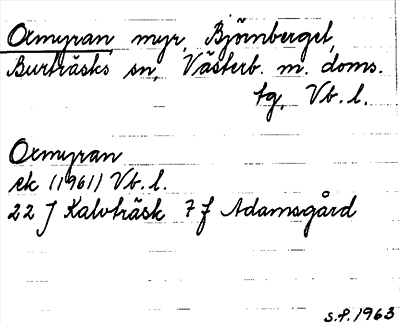 Oxmyran, myr, Björnberget,
Burträsks sn, Västerb. m. doms.
tg, Vb. l.
Oxmyran
ek (1961) Vb. l.
22 J Kalvträsk 7 f Adamsgård
S.P. 1963